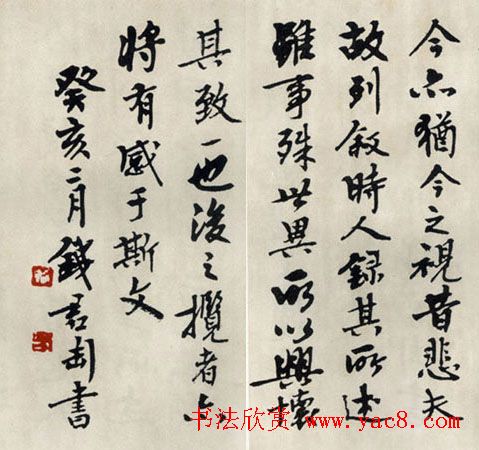 今亦猶今之視昔悲夫
故列叙時人録其所述
雖事殊世異所以興懷
其致一也後之攬者亦
將有感于斯文
癸亥二月錢君匋書
书法欣赏 www.yac8.com